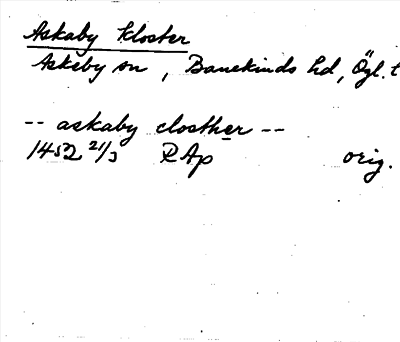 Askaby Kloster
Askeby sn, Bankekinds hd, Ögl. l
-- askaby closther --
1452 21/3 RAp orig.